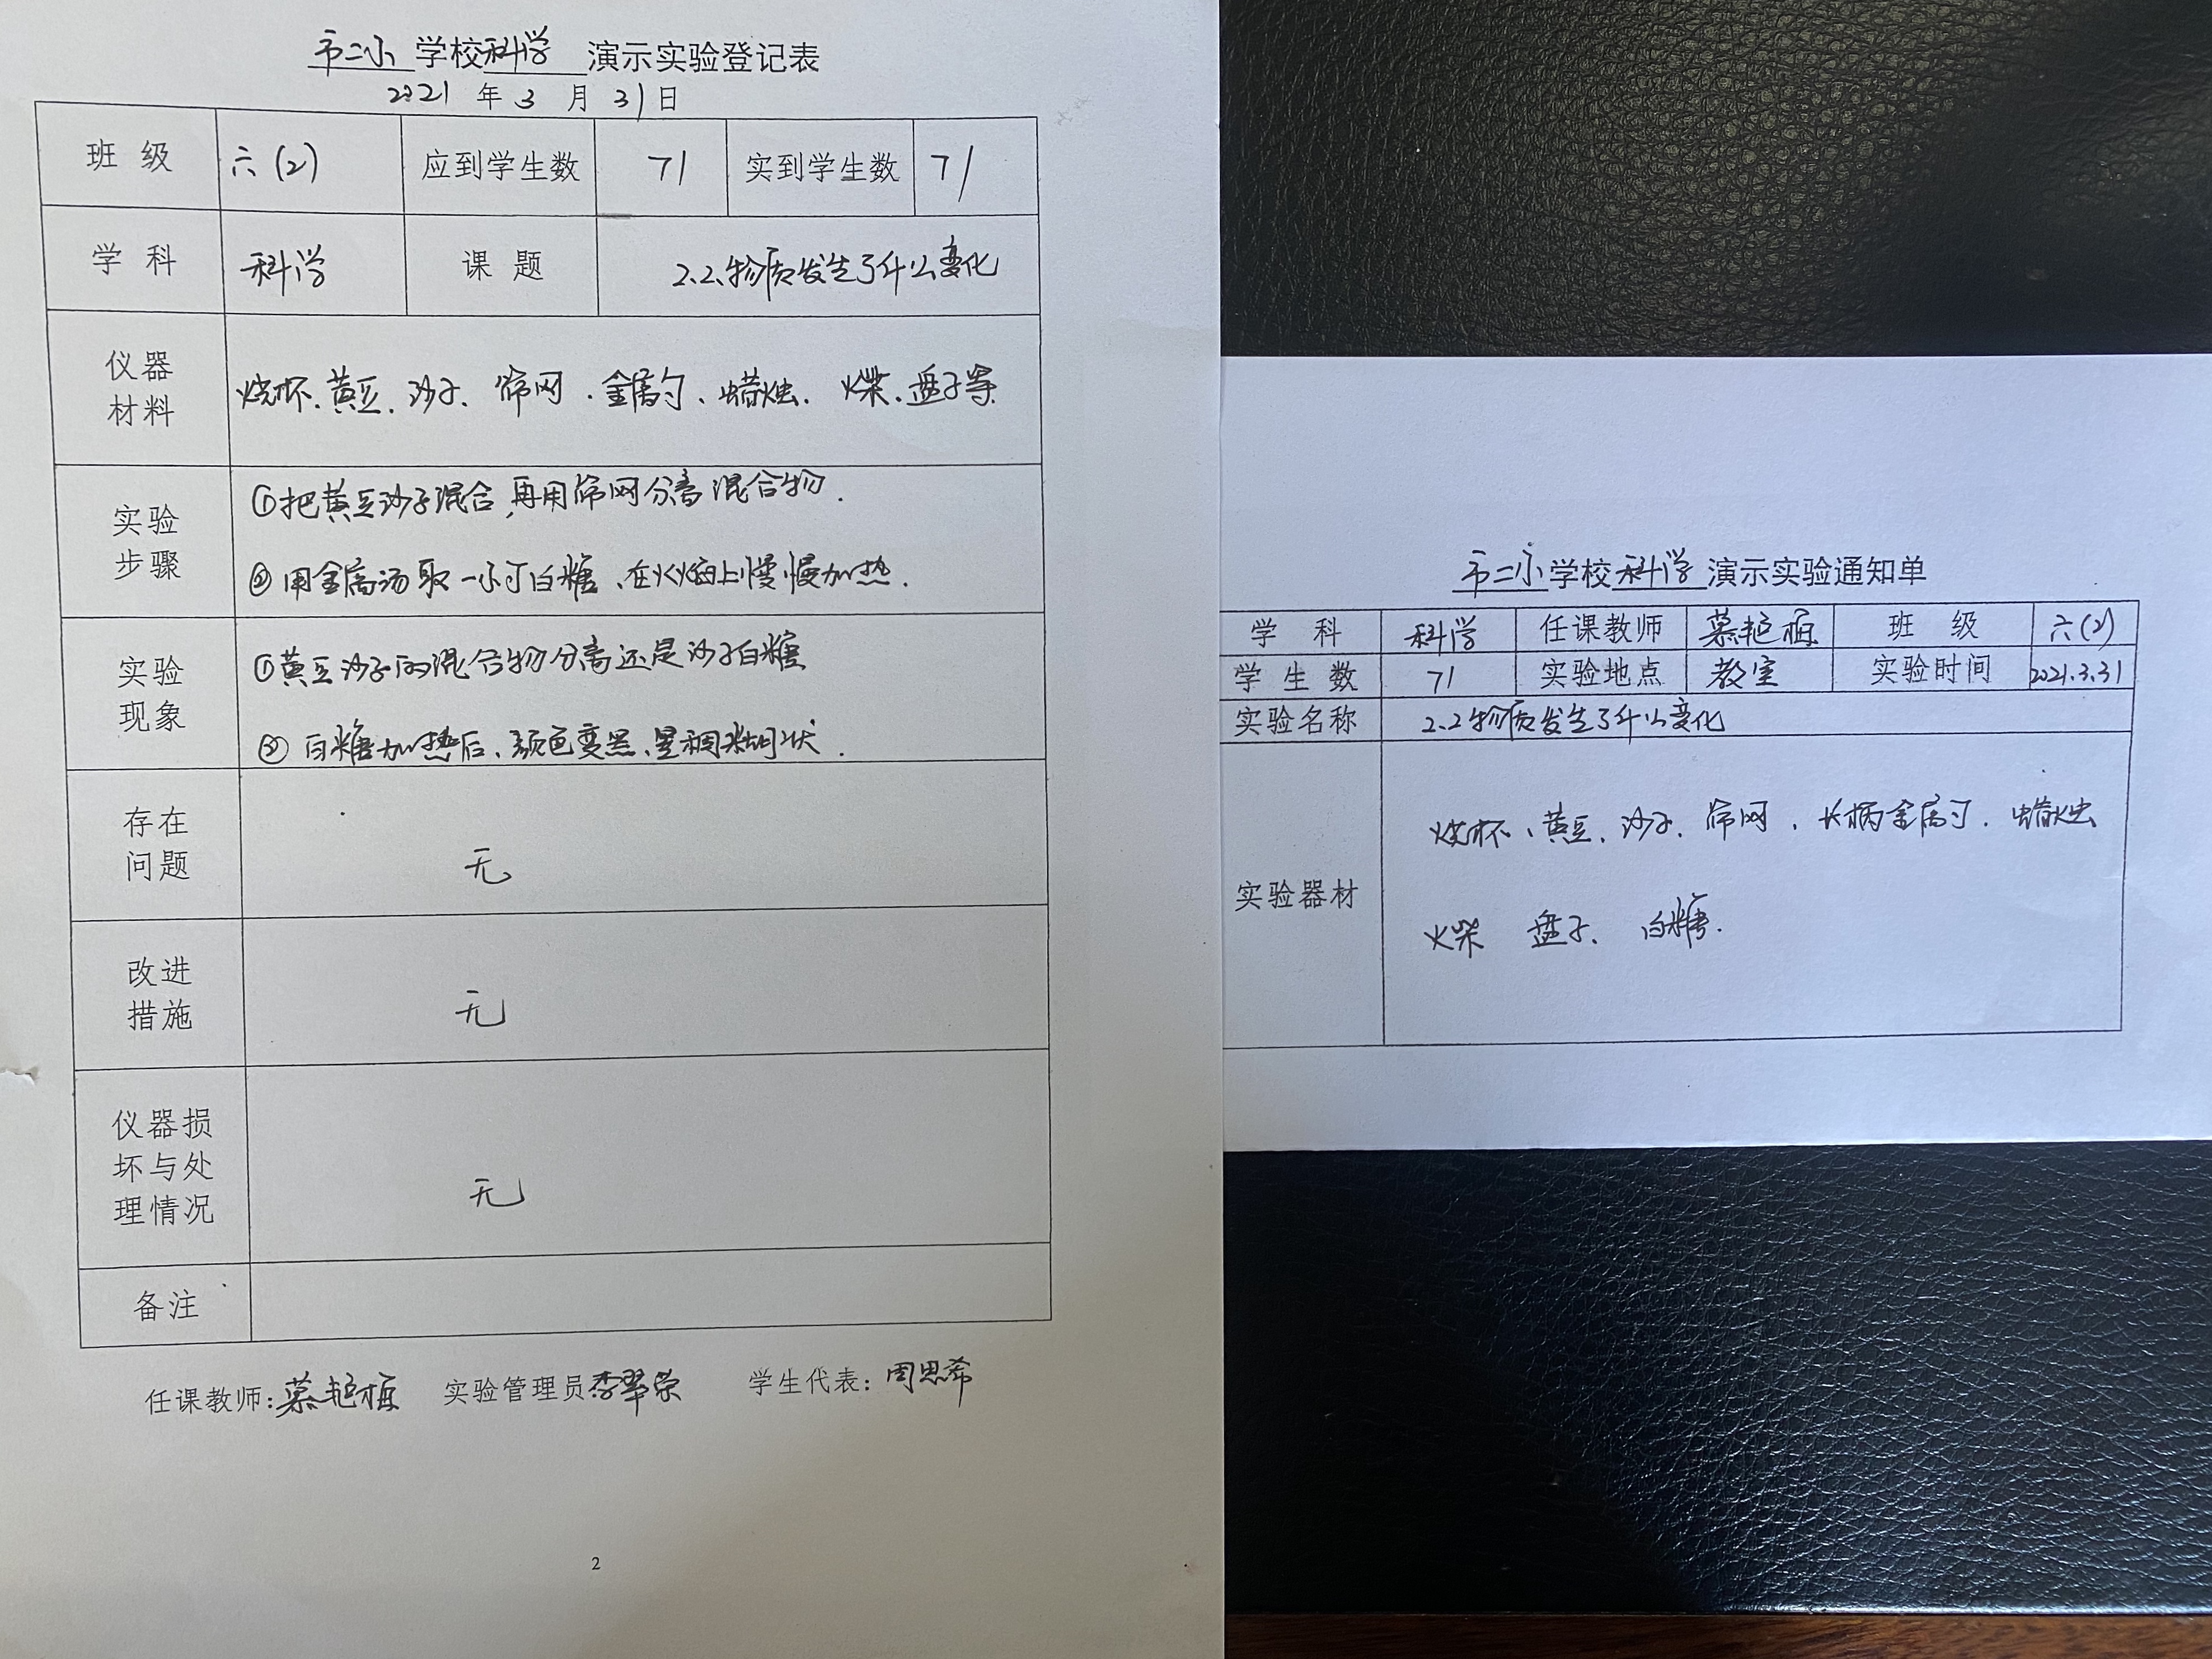 市二小学校科学演示实验登记表
2021年3月31日
班级 六(2) 应到学生数 71 实到学生数 71
学科 科学 课题 2.2.物质发生了什么变化
仪器材料 烧杯、黄豆、沙子、筛网、金属勺、蜡烛、火柴、盘子等
实验步骤 ①把黄豆沙子混合,再用筛网分离混合物.
②用金属汤取一小勺白糖、在火焰上慢慢加热.
实验现象 ①黄豆沙子的混合物分离还是沙子白糖
②白糖加热后、颜色变黑、呈稠糊状.
存在问题 无
改进措施 无
仪器损坏与处理情况 无
备注
任课教师:慕艳梅 实验管理员李翠荣 学生代表:周思希
2
市二小学校科学演示实验通知单
学科 科学 任课教师 慕艳梅 班级 六(2)
学生数 71 实验地点 教室 实验时间 2021.3.31
实验名称 2.2物质发生了什么变化
实验器材 烧杯、黄豆、沙子、筛网、长柄金属勺、蜡烛
火柴 盘子、白糖.